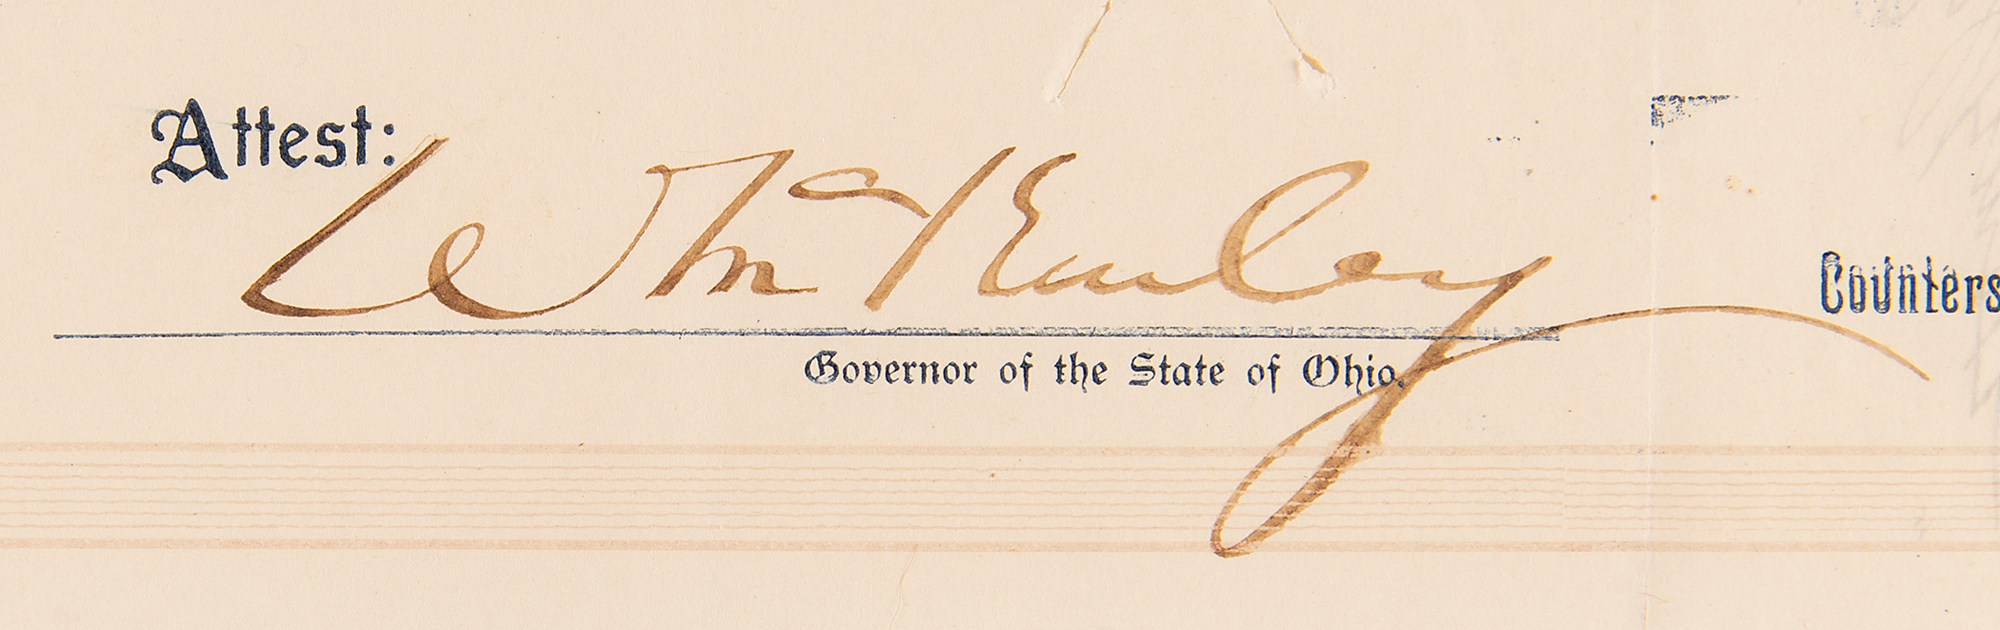 Attest:
Wm McKinley
Counters
Governor of the State of Ohio.